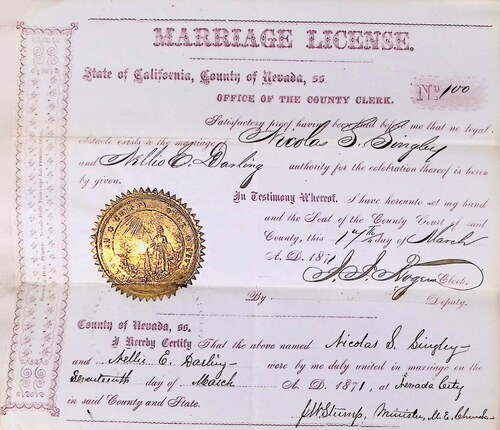 MARRIAGE LICENSE.
State of California, County of Nevada, ss.
OFFICE OF THE COUNTY CLERK.
No 100
Satisfactory proof having been made before me that no legal
obstacle exists to the marriage Nicolas S. Singley
and Nellie E. Darling authority for the celebration thereof is hereby
given.
In Testimony Whereof, I have hereunto set my hand
and the Seal of the County Court of said
County, this 17th day of March
A. D. 1871
J. J. Rogers Clerk.
By Deputy.
County of Nevada, ss.
I Hereby Certify That the above named Nicolas S. Singley
and Nellie E. Darling were by me duly united in marriage on the
Seventeenth day of March A. D. 1871, at Nevada City
in said County and State.
J W Stump, Minister, M. E. Church